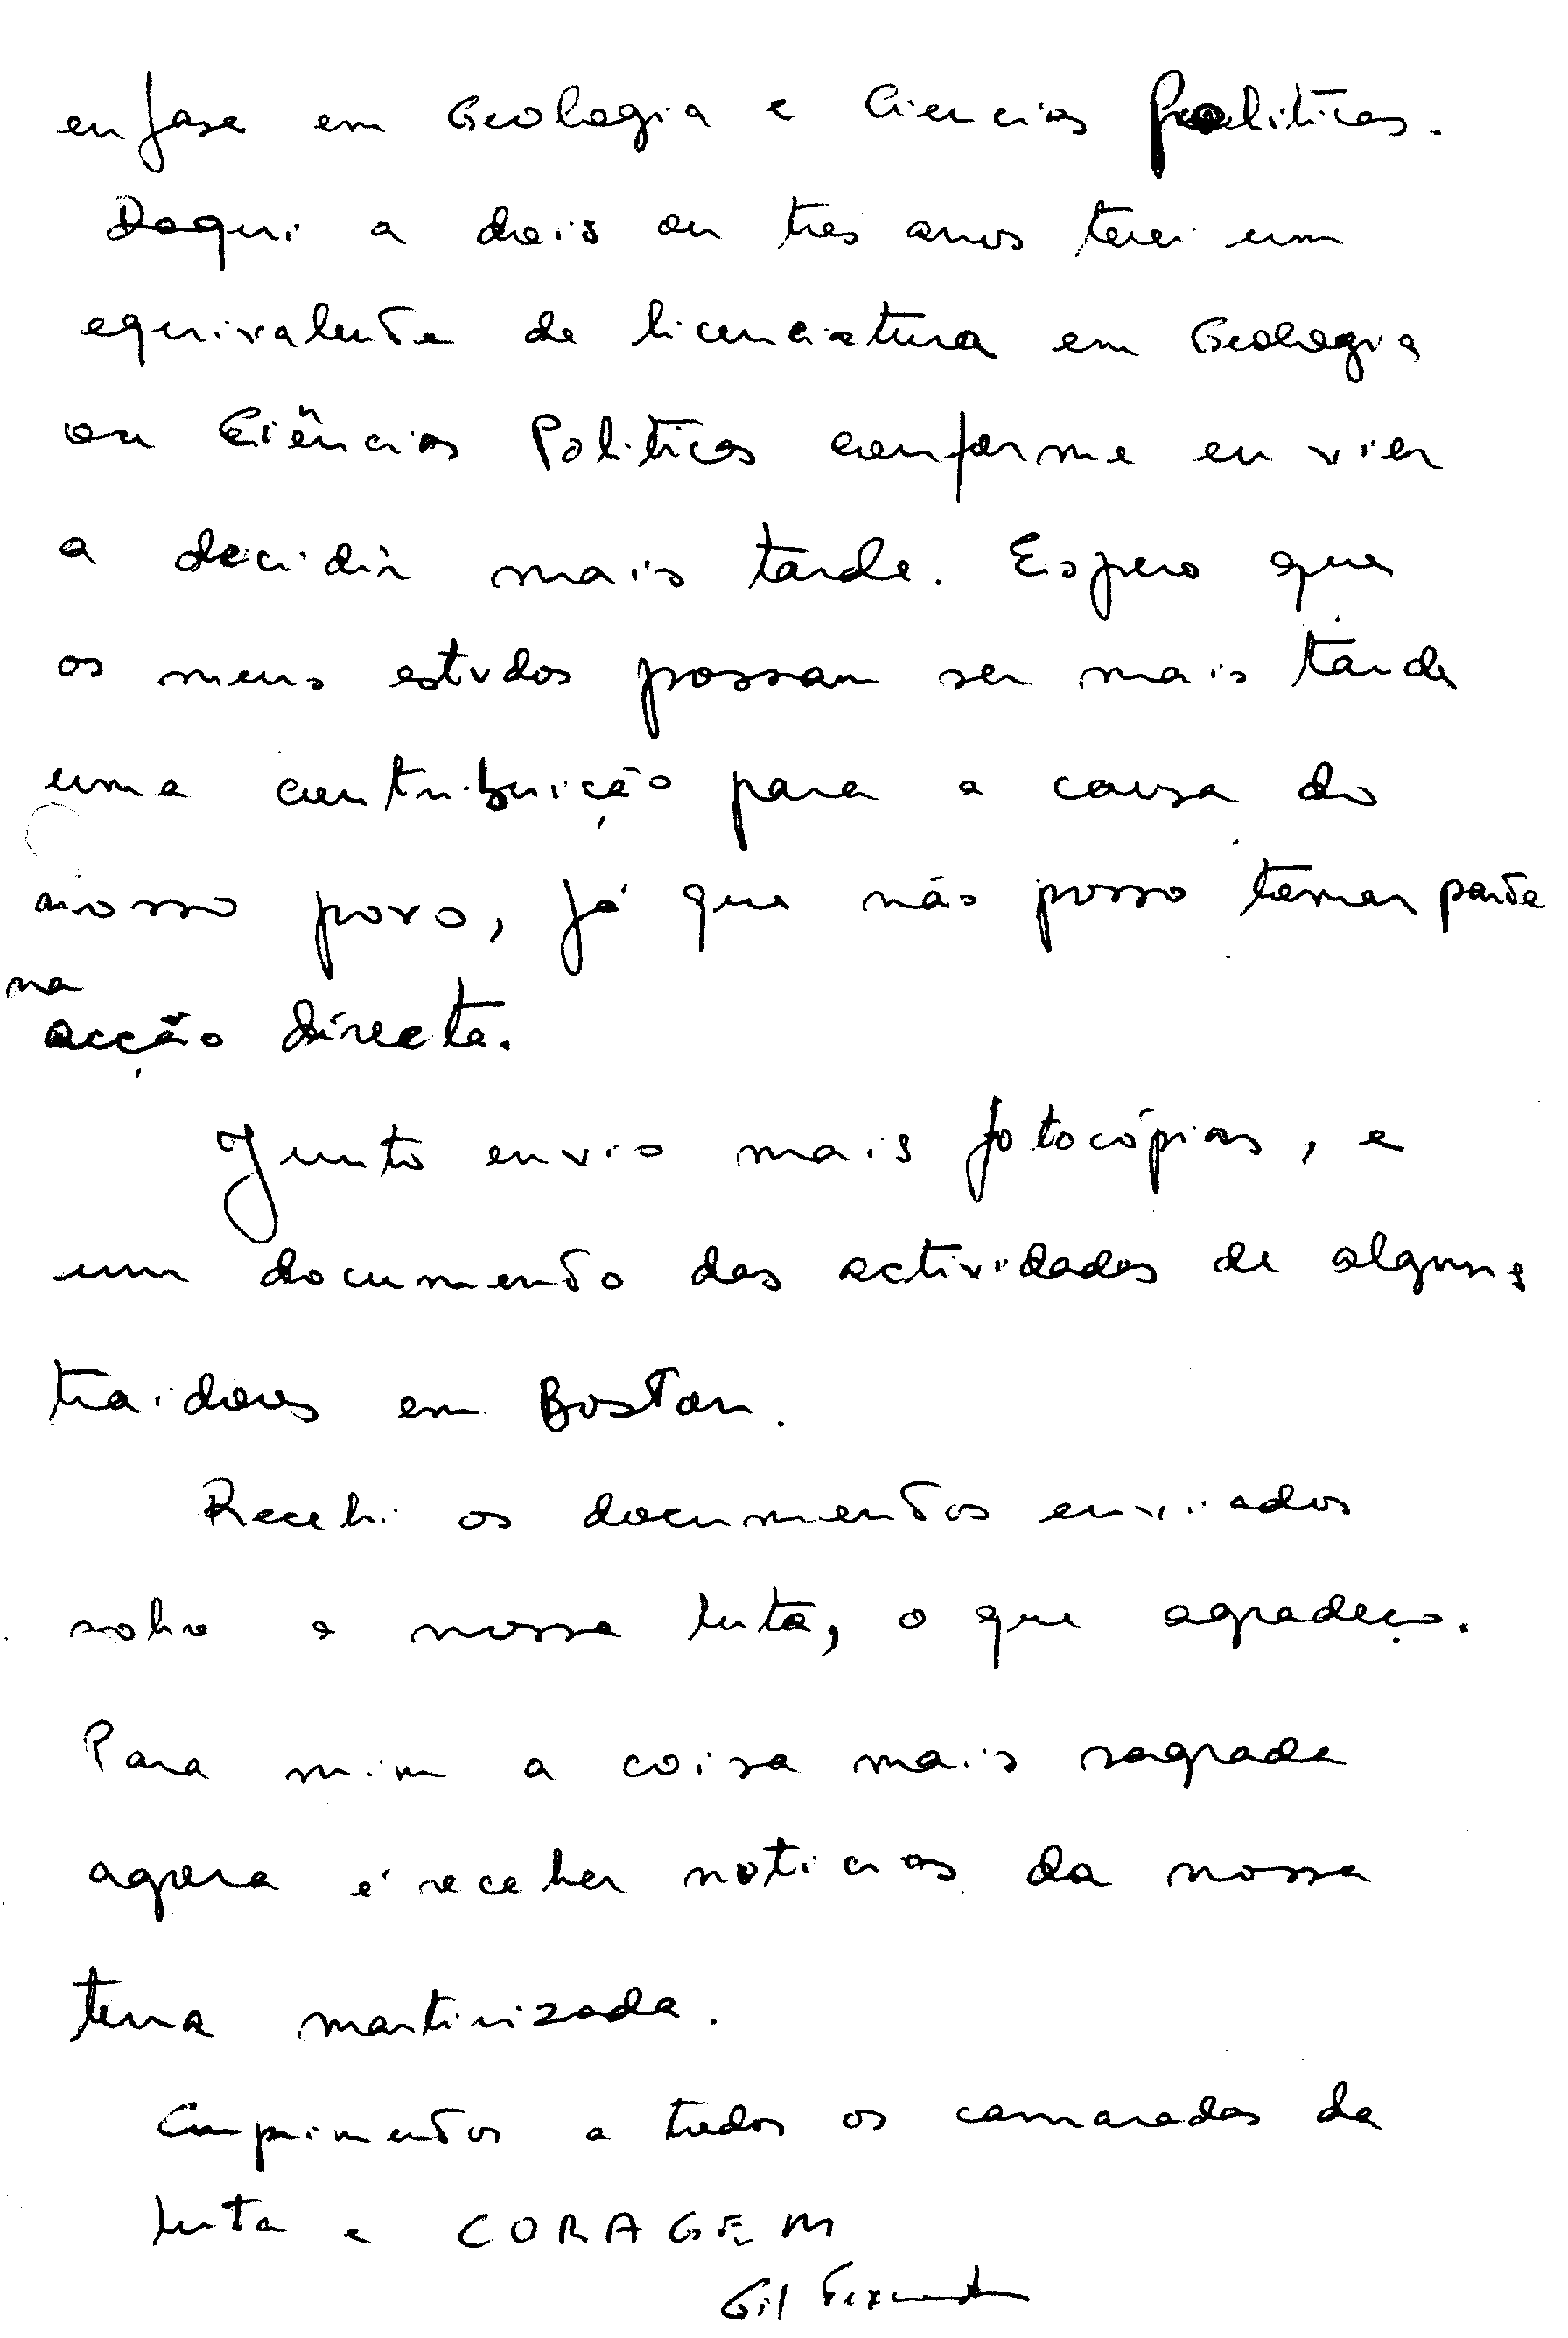 enfase em Geologia e Ciencias Politicas.
Daqui a dois ou tres anos terei um
equivalente de licenciatura em Geologia
ou Ciências Politicas conforme eu vier
a decidir mais tarde. Espero que
os meus estudos possam ser mais tarde
uma contribuição para a causa do
nosso povo, já que não posso tomar parte
na
acção directa.
Junto envio mais fotocópias, e
um documento das actividades de alguns
traidores em Boston.
Recebi os documentos enviados
sobre a nossa luta, o que agradeço.
Para mim a coisa mais sagrada
agora é receber noticias da nossa
terra martirizada.
Cumprimentos a todos os camaradas da
luta e CORAGEM
Gil